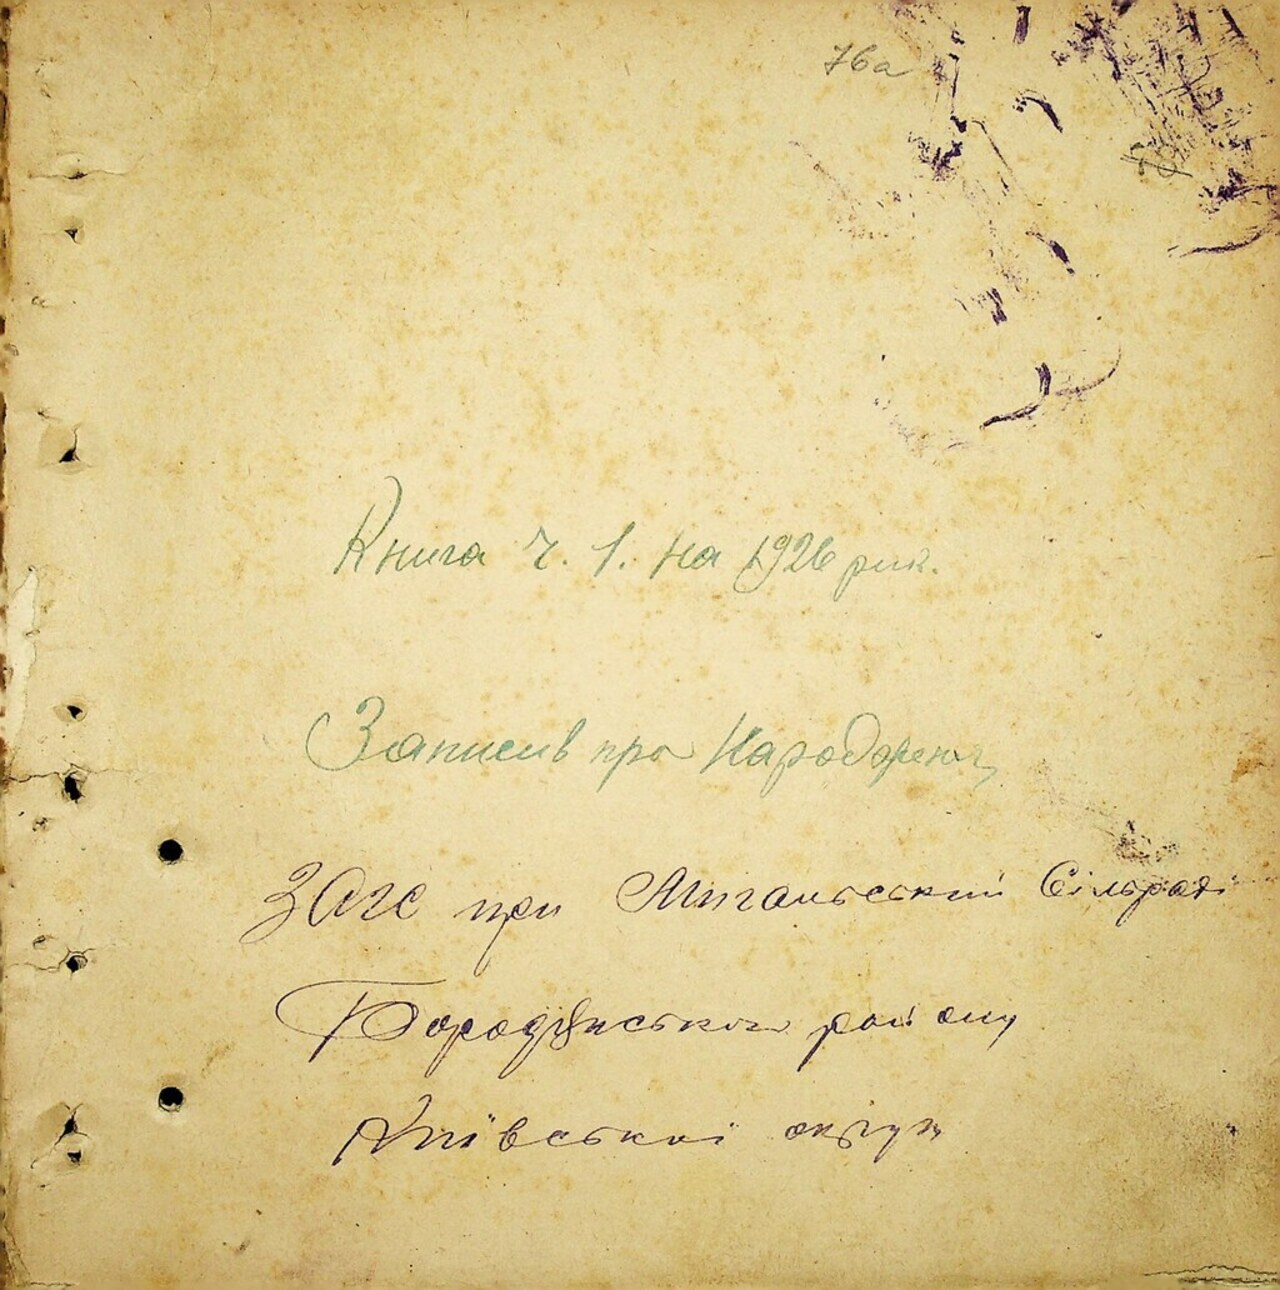 76а
Книга ч. 1. на 1926 рик.
Записів про Народження
ЗАГС при Мигальській Сільраді
Бородянського району
Київської округи